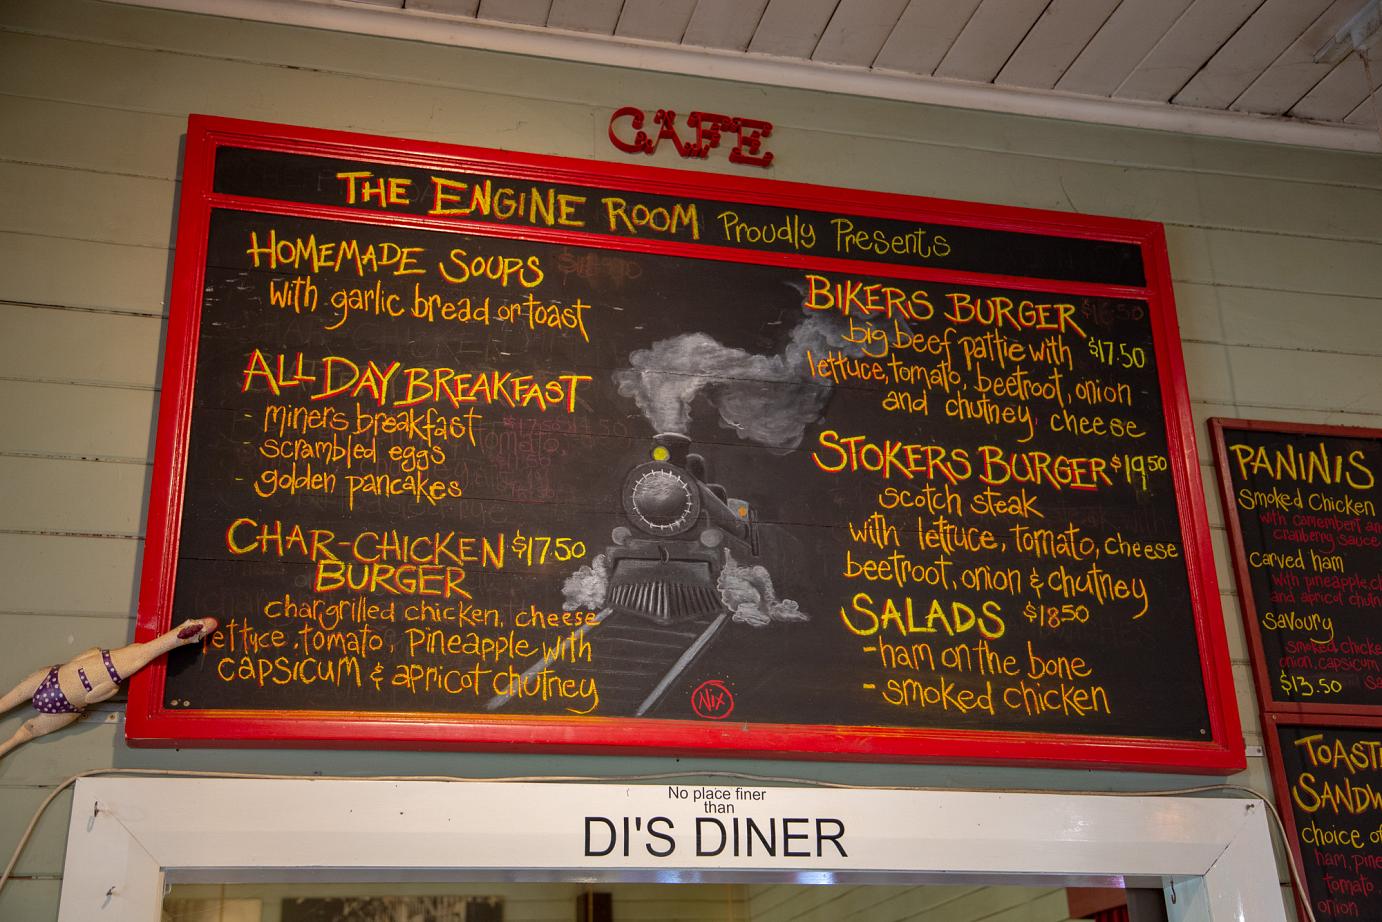 CAFE
THE ENGINE ROOM Proudly Presents
HOMEMADE SOUPS
with garlic bread or toast
ALL DAY BREAKFAST
- miners breakfast
- scrambled eggs
- golden pancakes
CHAR-CHICKEN $17.50
BURGER
chargrilled chicken, cheese
lettuce, tomato, pineapple with
capsicum & apricot chutney
BIKERS BURGER
big beef pattie with $17.50
lettuce, tomato, beetroot, onion
and chutney, cheese
STOKERS BURGER $19.50
scotch steak
with lettuce, tomato, cheese
beetroot, onion & chutney
SALADS $18.50
- ham on the bone
- smoked chicken
NIX
PANINIS
Smoked Chicken
with camembert an
cranberry sauce
Carved ham
with pineapple, ch
and apricot chutn
Savoury
smoked chicke
onion, capsicum
$13.50
TOAST
SANDW
choice of
ham, pine
tomato
onion
No place finer
than
DI'S DINER